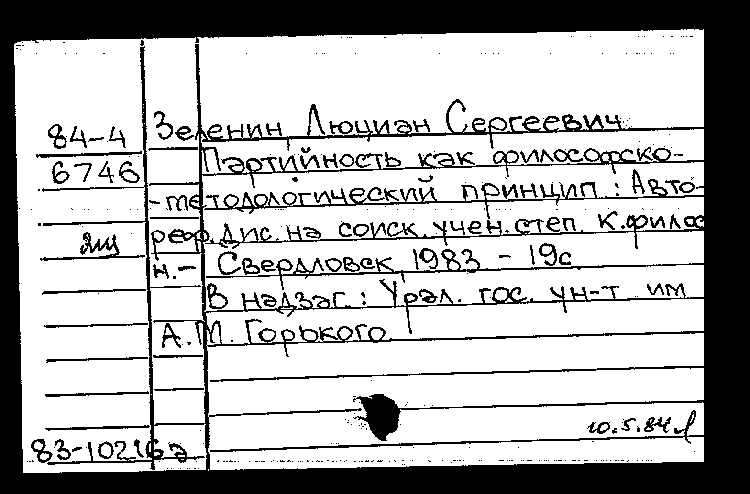 84-4 Зеленин, Люциан Сергеевич
6746 Партийность как философско-
-методологический принцип : Авто-
реф. дис. на соиск. учен. степ. к. филос
н. - Свердловск, 1983 - 19с.
В надзаг. : Урал. гос. ун-т им
А. М. Горького
10.5.84
83-10216а